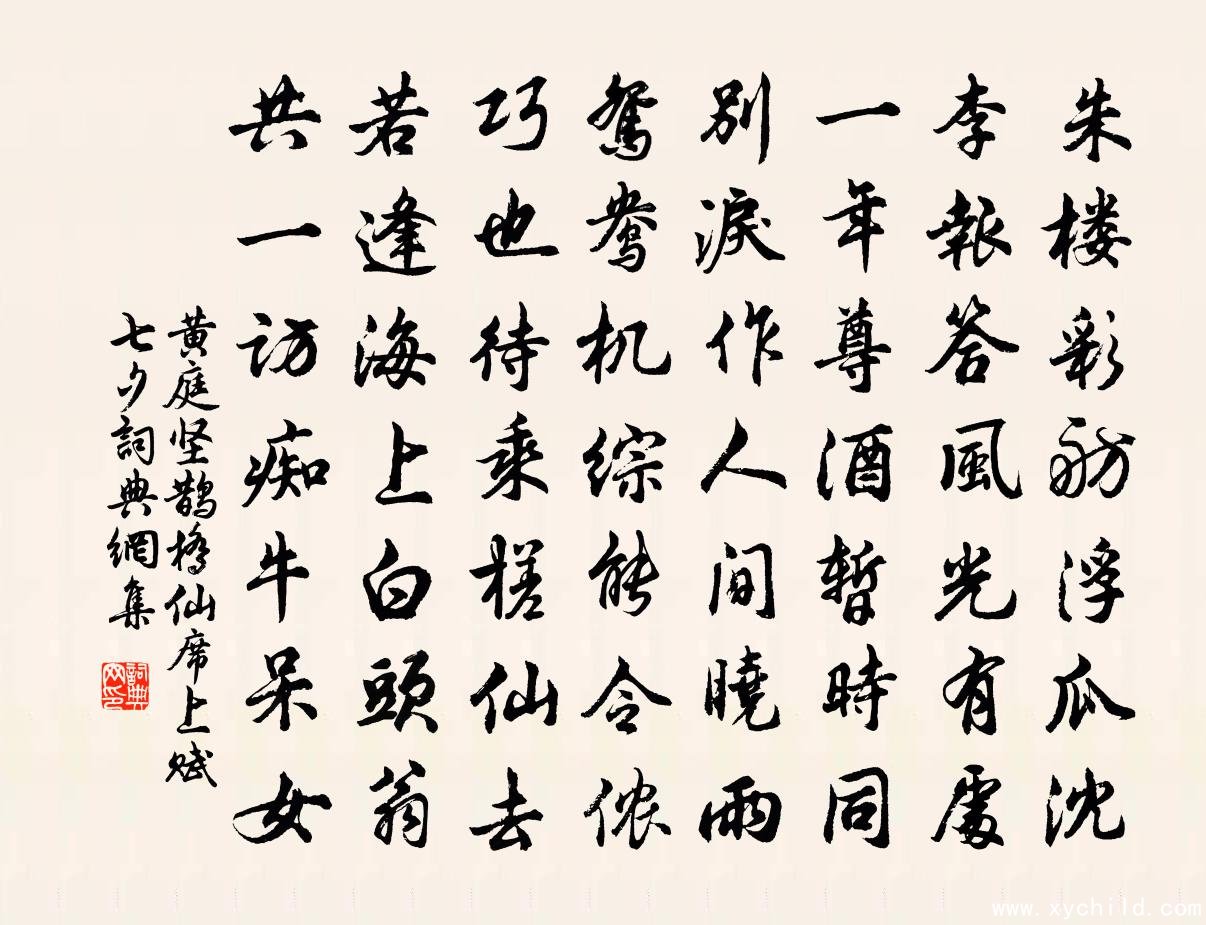 朱楼彩舫浮瓜沈
李報答風光有處
一年尊酒暫時同
別淚作人間曉雨
鴛鴦机综能令侬
巧也待乘槎仙去
若逢海上白頭翁
共一访痴牛呆女
黄庭坚鹊橋仙席上赋
七夕詞典網集
詞典
网印
www.xychild.com